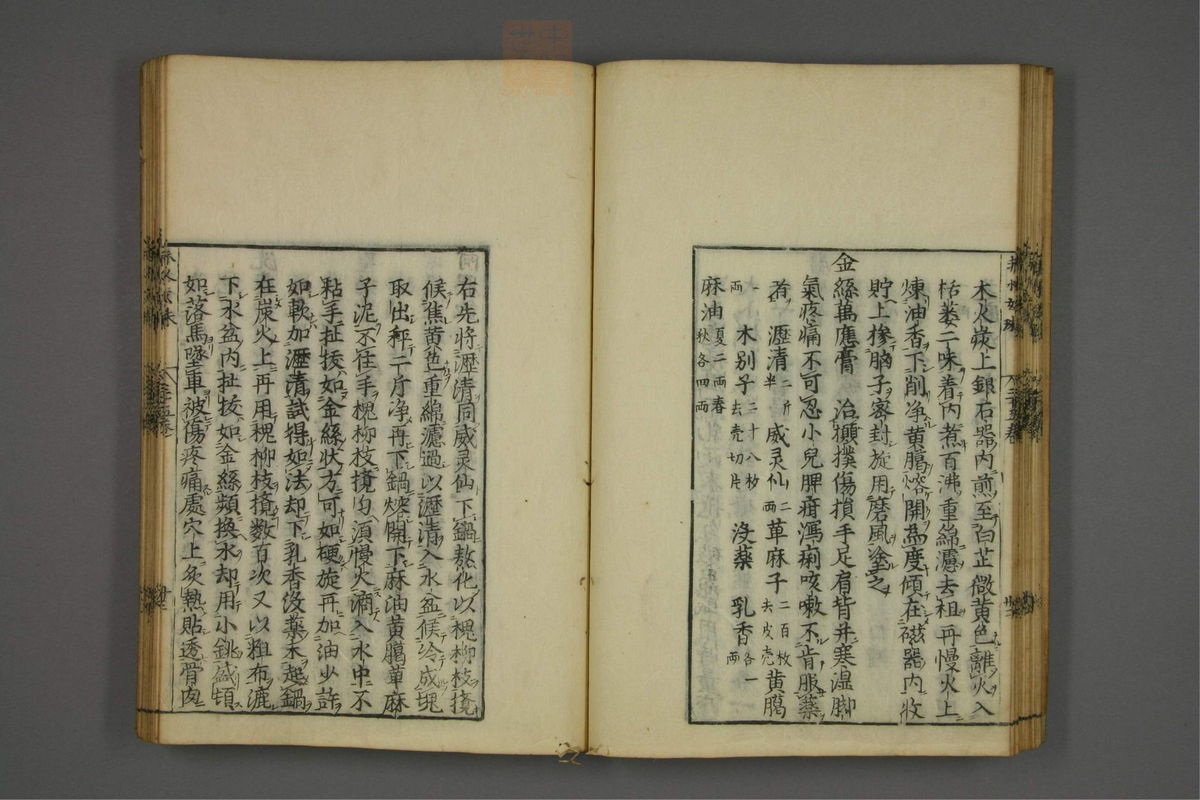 木火炭上銀石器内煎至白芷微黄色離火入
枯蔞二味着内煮百沸重綿濾去租再慢火上
煉油香下削净黄臈熔開為度傾在磁器内收
貯上摻腦子密封旋用磨風塗之
金絲萬應膏 治攧撲傷損手足肩背并寒湿脚
氣疼痛不可忍小兒脾疳瀉痢咳嗽不肯服藥
者 瀝清二斤半 威灵仙二両 草麻子二百枚去皮壳 黄臈
一両 木別子二十八枚去壳切片 没藥 乳香各一両
麻油夏二両春秋各四両
右先將瀝清同威灵仙下鍋熬化以槐柳枝撹
候焦黄色重綿濾過以瀝清入水盆候冷成塊
取出秤二斤净再下鍋熔開下麻油黄臈草麻
子泥不住手槐柳枝撹匀須慢火滴入水中不
粘手扯拔如金絲状方可如硬旋再加油少許
如軟加瀝清試得如法却下乳香没藥末起鍋
在炭火上再用槐柳枝撹数百次又以粗布漉
下水盆内扯拔如金絲頻換水却用小銚盛頓
如落馬墜車被傷疼痛處穴上灸熱貼透骨肉